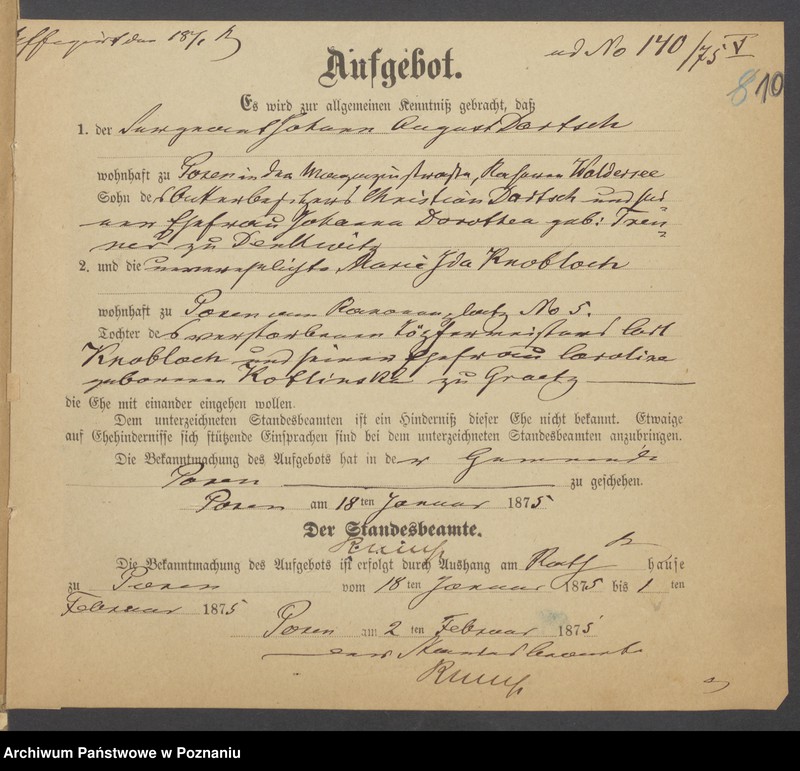 ad No 140/75 V
810
Aufgebot.
Es wird zur allgemeinen Kenntniß gebracht, daß
1. der Sergeant Johann August Dartsch
wohnhaft zu Posen in der Magazinstraße, Kaserne Waldersee
Sohn des Christian Dartsch und sei
ner Ehefrau Johanna Dorothea geb:
ner zu Denkwitz
2. und die unverehelichte Marie Ida Knobloch
wohnhaft zu Posen am No 5.
Tochter des verstorbenen Töpfermeisters Carl
Knobloch und seiner Ehefrau Caroline
geborenen Kotlinska zu Graetz
die Ehe mit einander eingehen wollen.
Dem unterzeichneten Standesbeamten ist ein Hinderniß dieser Ehe nicht bekannt. Etwaige
auf Ehehindernisse sich stützende Einsprachen sind bei dem unterzeichneten Standesbeamten anzubringen.
Die Bekanntmachung des Aufgebots hat in der Gemeinde
Posen zu geschehen.
Posen am 18ten Januar 1875
Der Standesbeamte.
Die Bekanntmachung des Aufgebots ist erfolgt durch Aushang am Rath hause
zu Posen vom 18ten Januar 1875 bis 1ten
Februar 1875
Posen am 2ten Februar 1875
der Standesbeamte
Archiwum Państwowe w Poznaniu